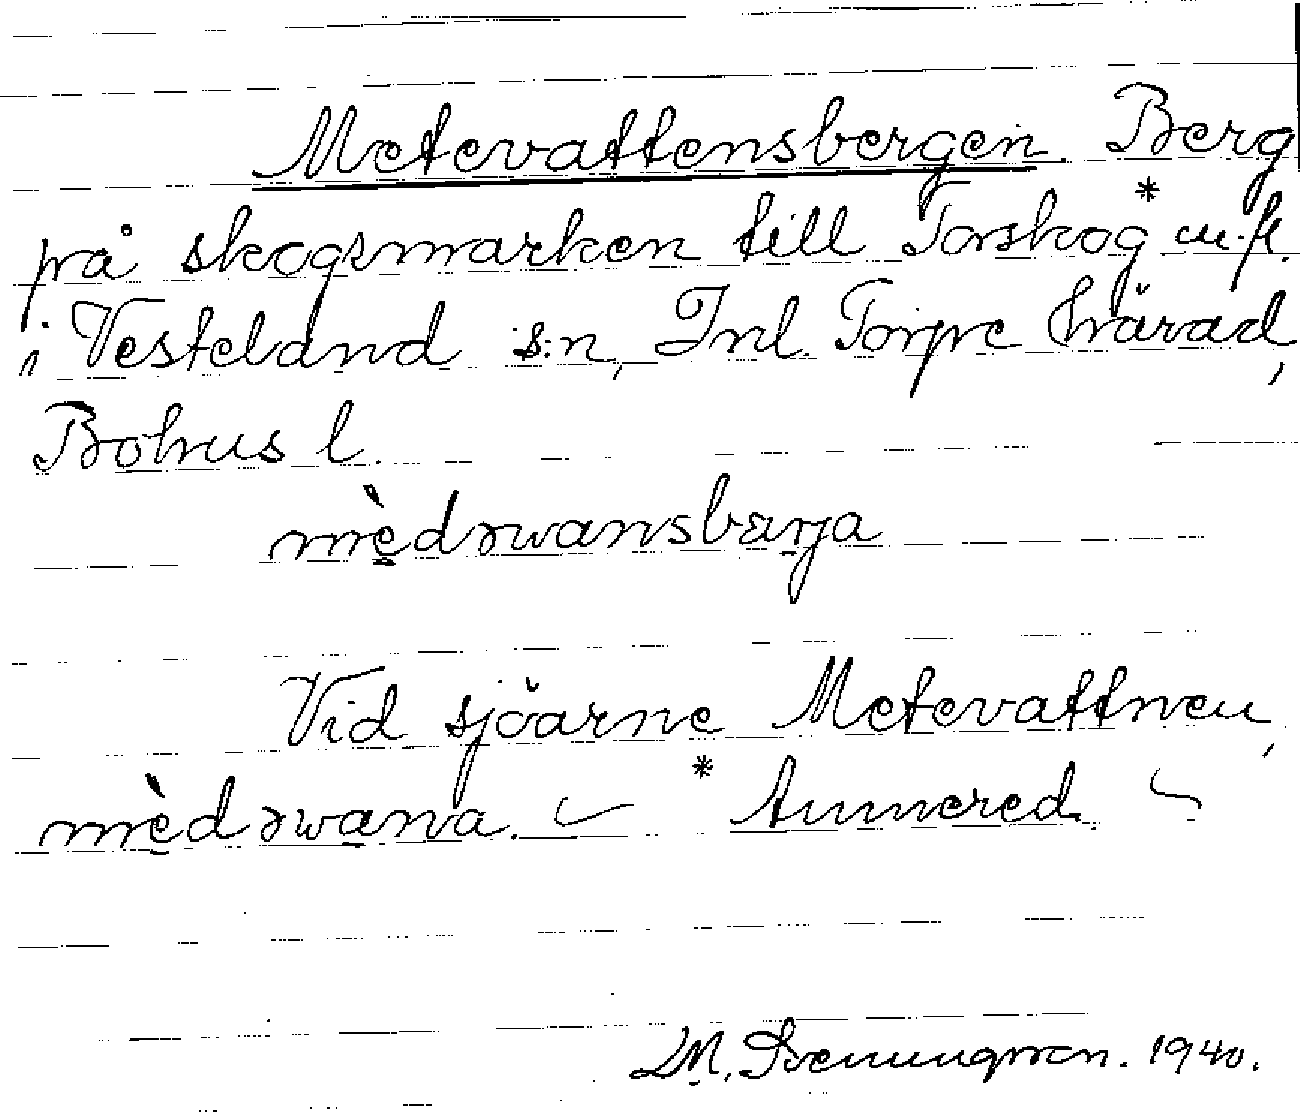 Metevattensbergen. Berg
på skogsmarken till Torskog* m.fl.
i Vesteland s:n, Inl. Torpe härad,
Bohus l.
mèdəwansbærja
Vid sjöarne Metevattnen,
mèdəwana. * Annered
M. Svenungsson. 1940.